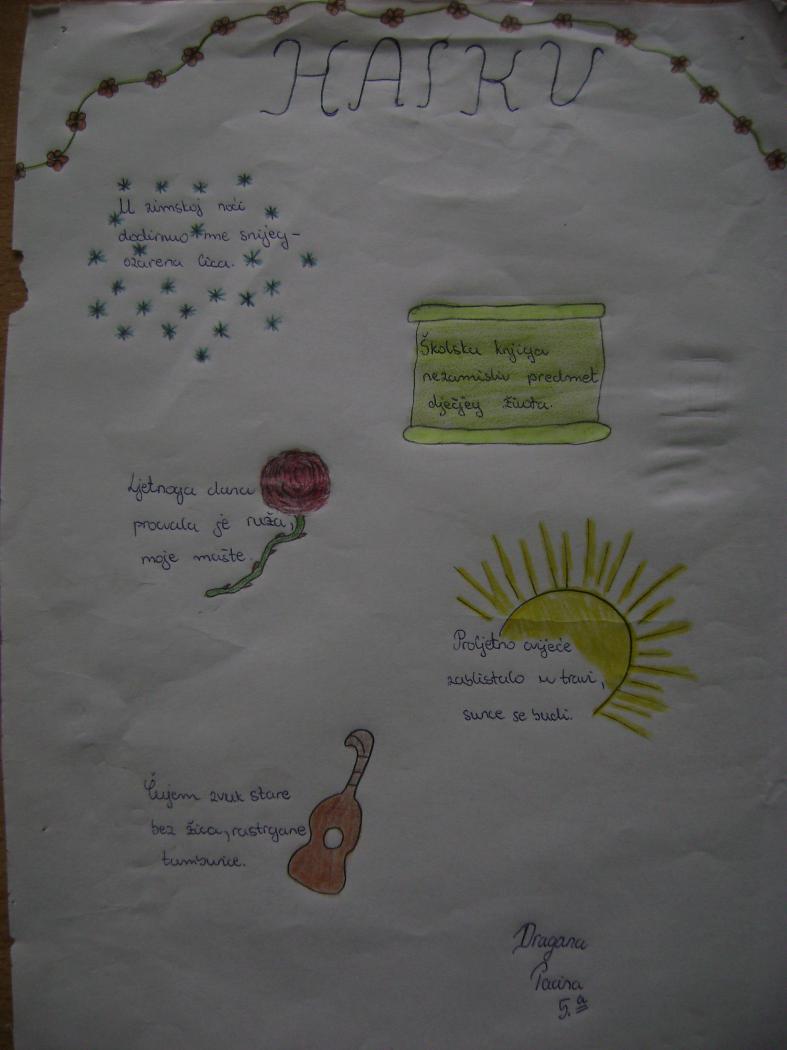 HAIKU
U zimskoj noći
dodirnuo me snijeg-
ozarena lica.
Školska knjiga
nezamisliv predmet
dječjeg života.
Ljetnoga dana
procvala je ruža,
moje mašte.
Proljetno cvijeće
zablistalo u travi,
sunce se budi.
Čujem zvuk stare
bez žica, rastrgane
tamburice.
Dragana
5. a